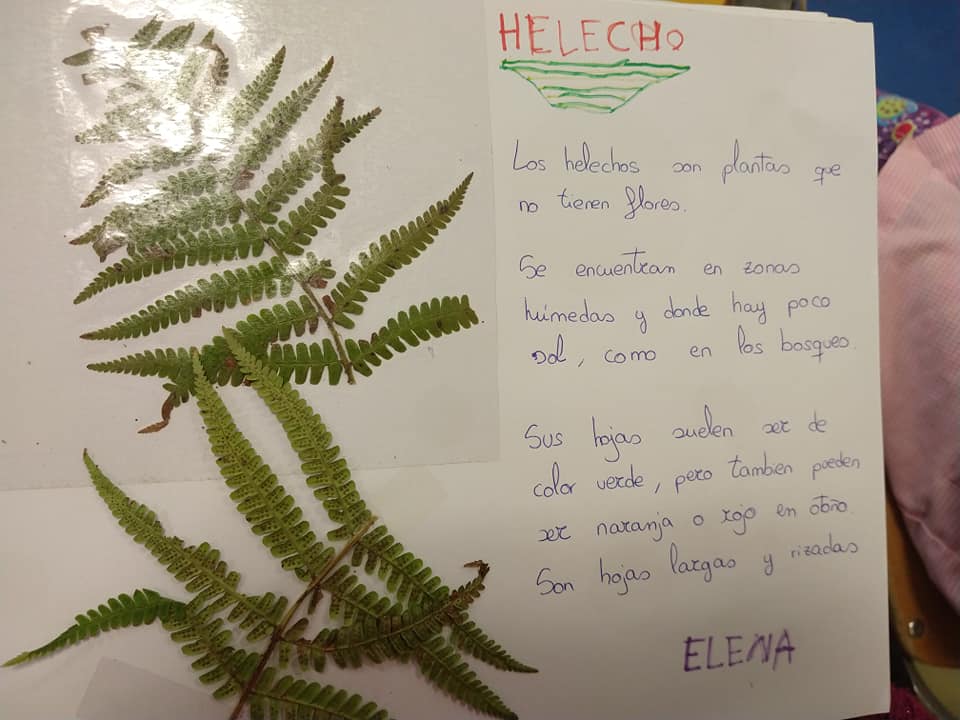 HELECHO
Los helechos son plantas que
no tienen flores.
Se encuentran en zonas
húmedas y donde hay poco
sol, como en los bosques.
Sus hojas suelen ser de
color verde, pero tambien pueden
ser naranja o rojo en otoño.
Son hojas largas y rizadas
ELENA